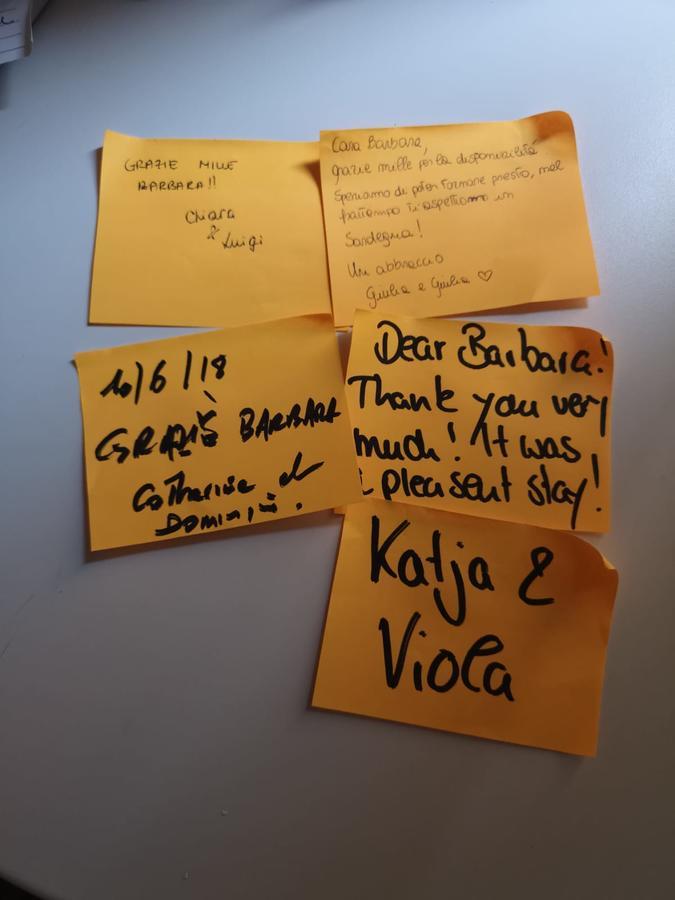 GRAZIE MILLE
BARBARA!!
Chiara
&
Luigi
Cara Barbara,
grazie mille per la disponibilità
Speriamo di poter tornare presto, nel
frattempo ti aspettiamo in
Sardegna!
Un abbraccio
Giulia e Giulia ♡
10/6/18
GRAZIE BARBARA
Catherine et
Dominic
Dear Barbara!
Thank you very
much! It was
pleasent stay!
Katja &
Viola